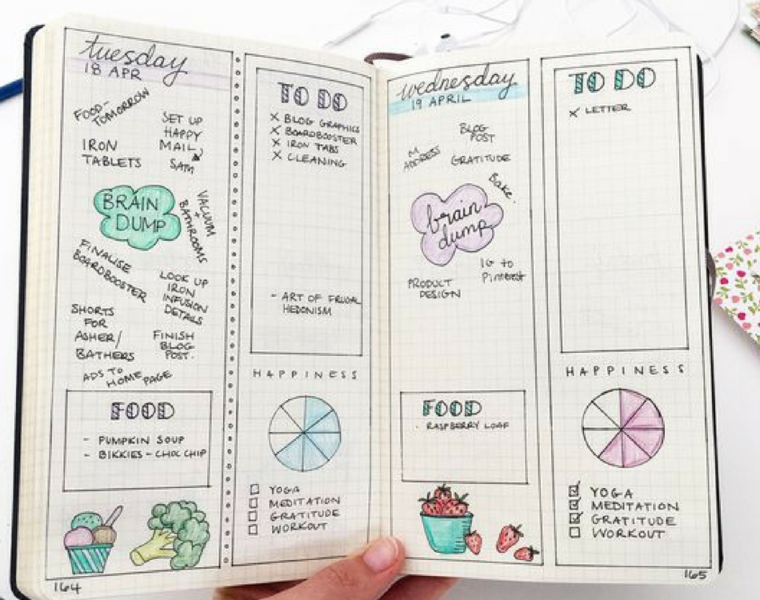 tuesday
18 APR
FOOD-
TOMORROW
SET UP
HAPPY
MAIL
IRON
TABLETS
SATM
BRAIN
DUMP
VACUUM
+
BATHROOMS
FINALISE
BOARDBOOSTER
LOOK UP
IRON
INFUSION
DETAILS
SHORTS
FOR
ASHER/
BATHERS
FINISH
BLOG
POST.
ADS TO
HOME PAGE
FOOD
- PUMPKIN SOUP
- BIKKIES - CHOC CHIP
164
TO DO
X BLOG GRAPHICS
X BOARDBOOSTER
X IRON TABS
X CLEANING
- ART OF FRUGAL
HEDONISM
HAPPINESS
YOGA
MEDITATION
GRATITUDE
WORKOUT
wednesday
19 APRIL
BLOG
POST
M
ADDRESS
GRATITUDE
Bake.
brain
dump
IG to
Pinterest
PRODUCT
DESIGN
FOOD
· RASPBERRY LOAF
TO DO
X LETTER
HAPPINESS
YOGA
MEDITATION
GRATITUDE
WORKOUT
165